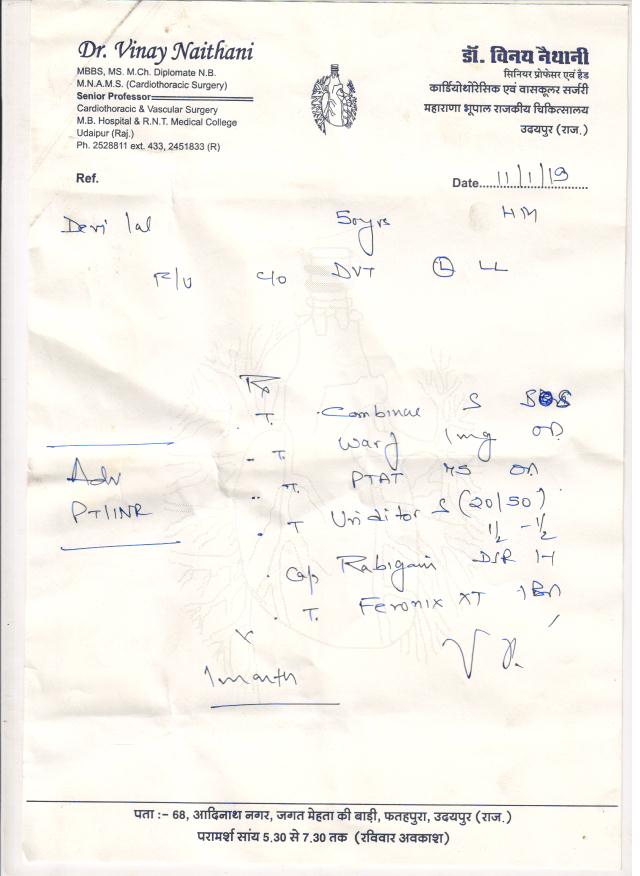 Dr. Vinay Naithani
MBBS, MS. M.Ch. Diplomate N.B.
M.N.A.M.S. (Cardiothoracic Surgery)
Senior Professor
Cardiothoracic & Vascular Surgery
M.B. Hospital & R.N.T. Medical College
Udaipur (Raj.)
Ph. 2528811 ext. 433, 2451833 (R)
डॉ. विनय नैथानी
सिनियर प्रोफेसर एवं हैड
कार्डियोथोरेसिक एवं वासकूलर सर्जरी
महाराणा भूपाल राजकीय चिकित्सालय
उदयपुर (राज.)
Ref.
Date 11/1/19
Devi lal 50yrs
F/U c/o DVT (L) LL
Rx
T. S
T. Warf 1mg OD
T. PTAT 75 OD
T S (20/50)
1/2 - 1/2
Cap DSR
T. Feronix XT
Adv
PT/INR
1 month
पता :- 68, आदिनाथ नगर, जगत मेहता की बाड़ी, फतहपुरा, उदयपुर (राज.)
परामर्श सांय 5.30 से 7.30 तक (रविवार अवकाश)